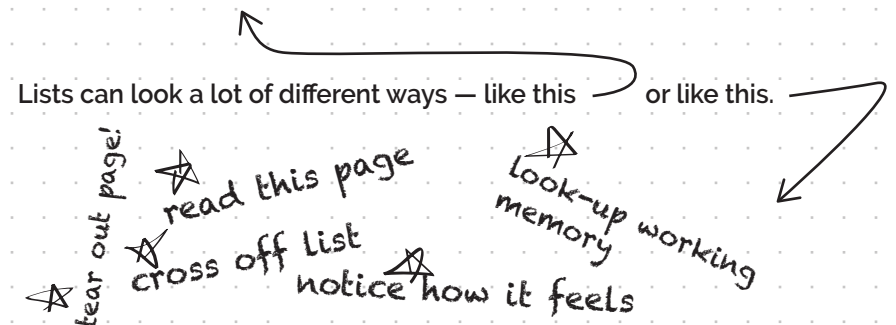 Lists can look a lot of different ways — like this or like this.
tear out page!
read this page
cross off list
notice how it feels
look-up working
memory